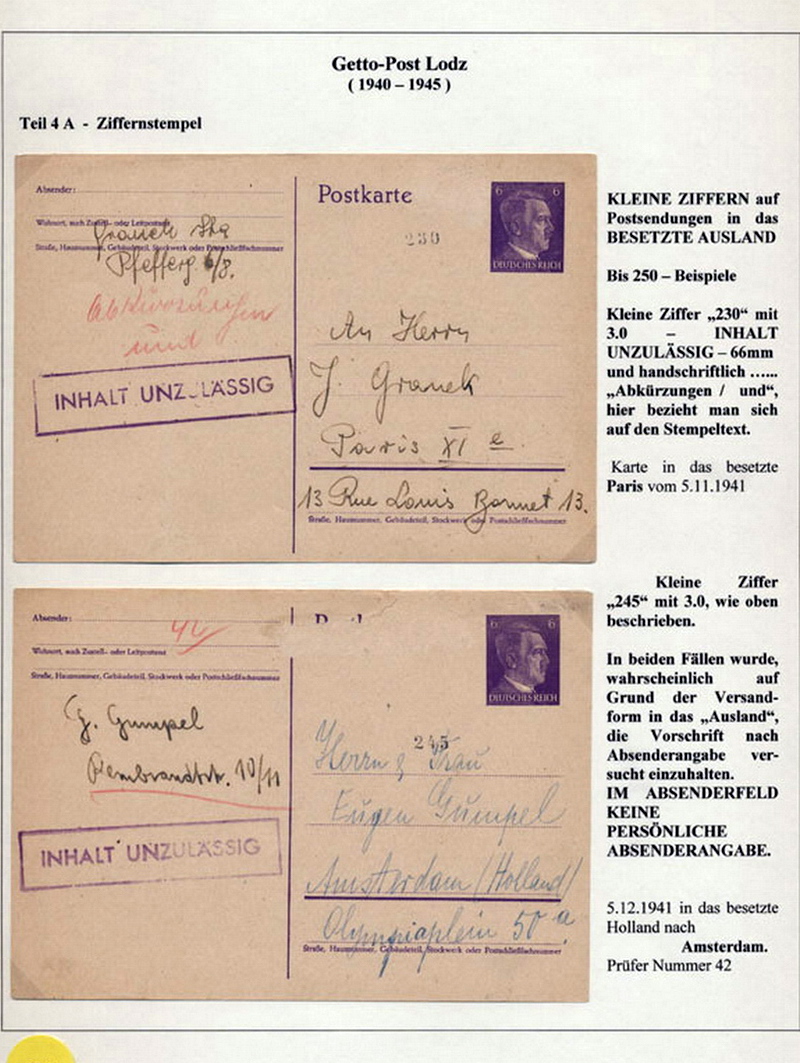 Getto-Post Lodz
( 1940 – 1945 )
Teil 4 A - Ziffernstempel
Absender:
Wohnort, auch Zustell- oder Leitpostamt
Granek
Straße, Hausnummer, Gebäudeteil, Stockwerk oder Postschließfachnummer
Pfefferg. 6/8.
Abkürzungen
und
INHALT UNZULÄSSIG
Postkarte
230
6 6
DEUTSCHES REICH
An Herrn
J. Granek
Paris XI e.
13 Rue Louis Bonnet 13.
Straße, Hausnummer, Gebäudeteil, Stockwerk oder Postschließfachnummer
KLEINE ZIFFERN auf
Postsendungen in das
BESETZTE AUSLAND
Bis 250 – Beispiele
Kleine Ziffer „230“ mit
3.0 – INHALT
UNZULÄSSIG – 66mm
und handschriftlich …...
„Abkürzungen / und“,
hier bezieht man sich
auf den Stempeltext.
Karte in das besetzte
Paris vom 5.11.1941
Absender:
42
Wohnort, auch Zustell- oder Leitpostamt
Straße, Hausnummer, Gebäudeteil, Stockwerk oder Postschließfachnummer
G. Gumpel
Rembrandtstr. 10/11
INHALT UNZULÄSSIG
6 6
DEUTSCHES REICH
245
Herrn & Frau
Eugen Gumpel
Amsterdam (Holland)
Olympiaplein 50 a.
Straße, Hausnummer, Gebäudeteil, Stockwerk oder Postschließfachnummer
Kleine Ziffer
„245“ mit 3.0, wie oben
beschrieben.
In beiden Fällen wurde,
wahrscheinlich auf
Grund der Versand-
form in das „Ausland“,
die Vorschrift nach
Absenderangabe ver-
sucht einzuhalten.
IM ABSENDERFELD
KEINE
PERSÖNLICHE
ABSENDERANGABE.
5.12.1941 in das besetzte
Holland nach
Amsterdam.
Prüfer Nummer 42